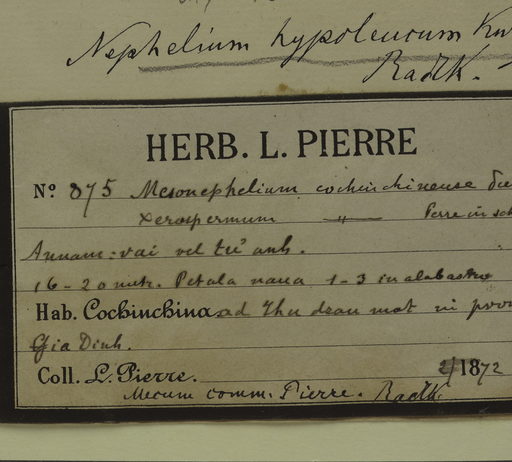 Nephelium hypoleucum Kur
Radlk.
HERB. L. PIERRE
No. 875 Mesonephelium cochinchinense
Xerospermum — " — Pierre in sch
Annam: vai vel tu' anh.
16-20 metr. Petala nana 1-3 in alabastro
Hab. Cochinchina ad Thu dean mot in prov
Gia Dinh.
Coll. L. Pierre. 1872
Mecum comm. Pierre. Radlk.